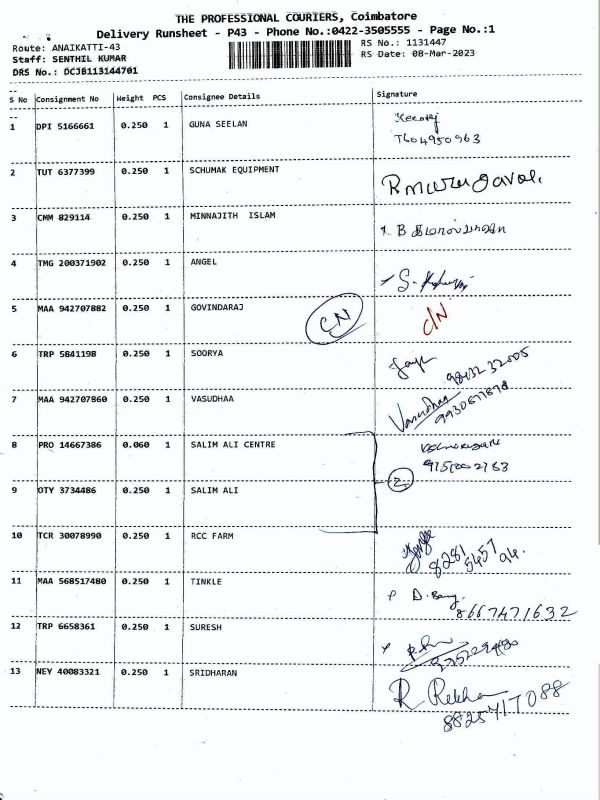 THE PROFESSIONAL COURIERS, Coimbatore
Delivery Runsheet - P43 - Phone No.:0422-3505555 - Page No.:1
Route: ANAIKATTI-43 RS No.: 1131447
Staff: SENTHIL KUMAR RS Date: 08-Mar-2023
DRS No.: DCJB113144701
S No Consignment No Height PCS Consignee Details Signature
1 DPI 5166661 0.250 1 GUNA SEELAN
2 TUT 6377399 0.250 1 SCHUMAK EQUIPMENT
3 CMM 829114 0.250 1 MINNAJITH ISLAM
4 TMG 200371902 0.250 1 ANGEL
5 MAA 942707882 0.250 1 GOVINDARAJ CN C/N
6 TRP 5841198 0.250 1 SOORYA
7 MAA 942707860 0.250 1 VASUDHAA Vasudhaa
8 PRO 14667386 0.060 1 SALIM ALI CENTRE
9 OTY 3734486 0.250 1 SALIM ALI 2
10 TCR 30078990 0.250 1 RCC FARM
11 MAA 568517480 0.250 1 TINKLE
8667471632
12 TRP 6658361 0.250 1 SURESH
13 NEY 40083321 0.250 1 SRIDHARAN R Rekha
8825717088